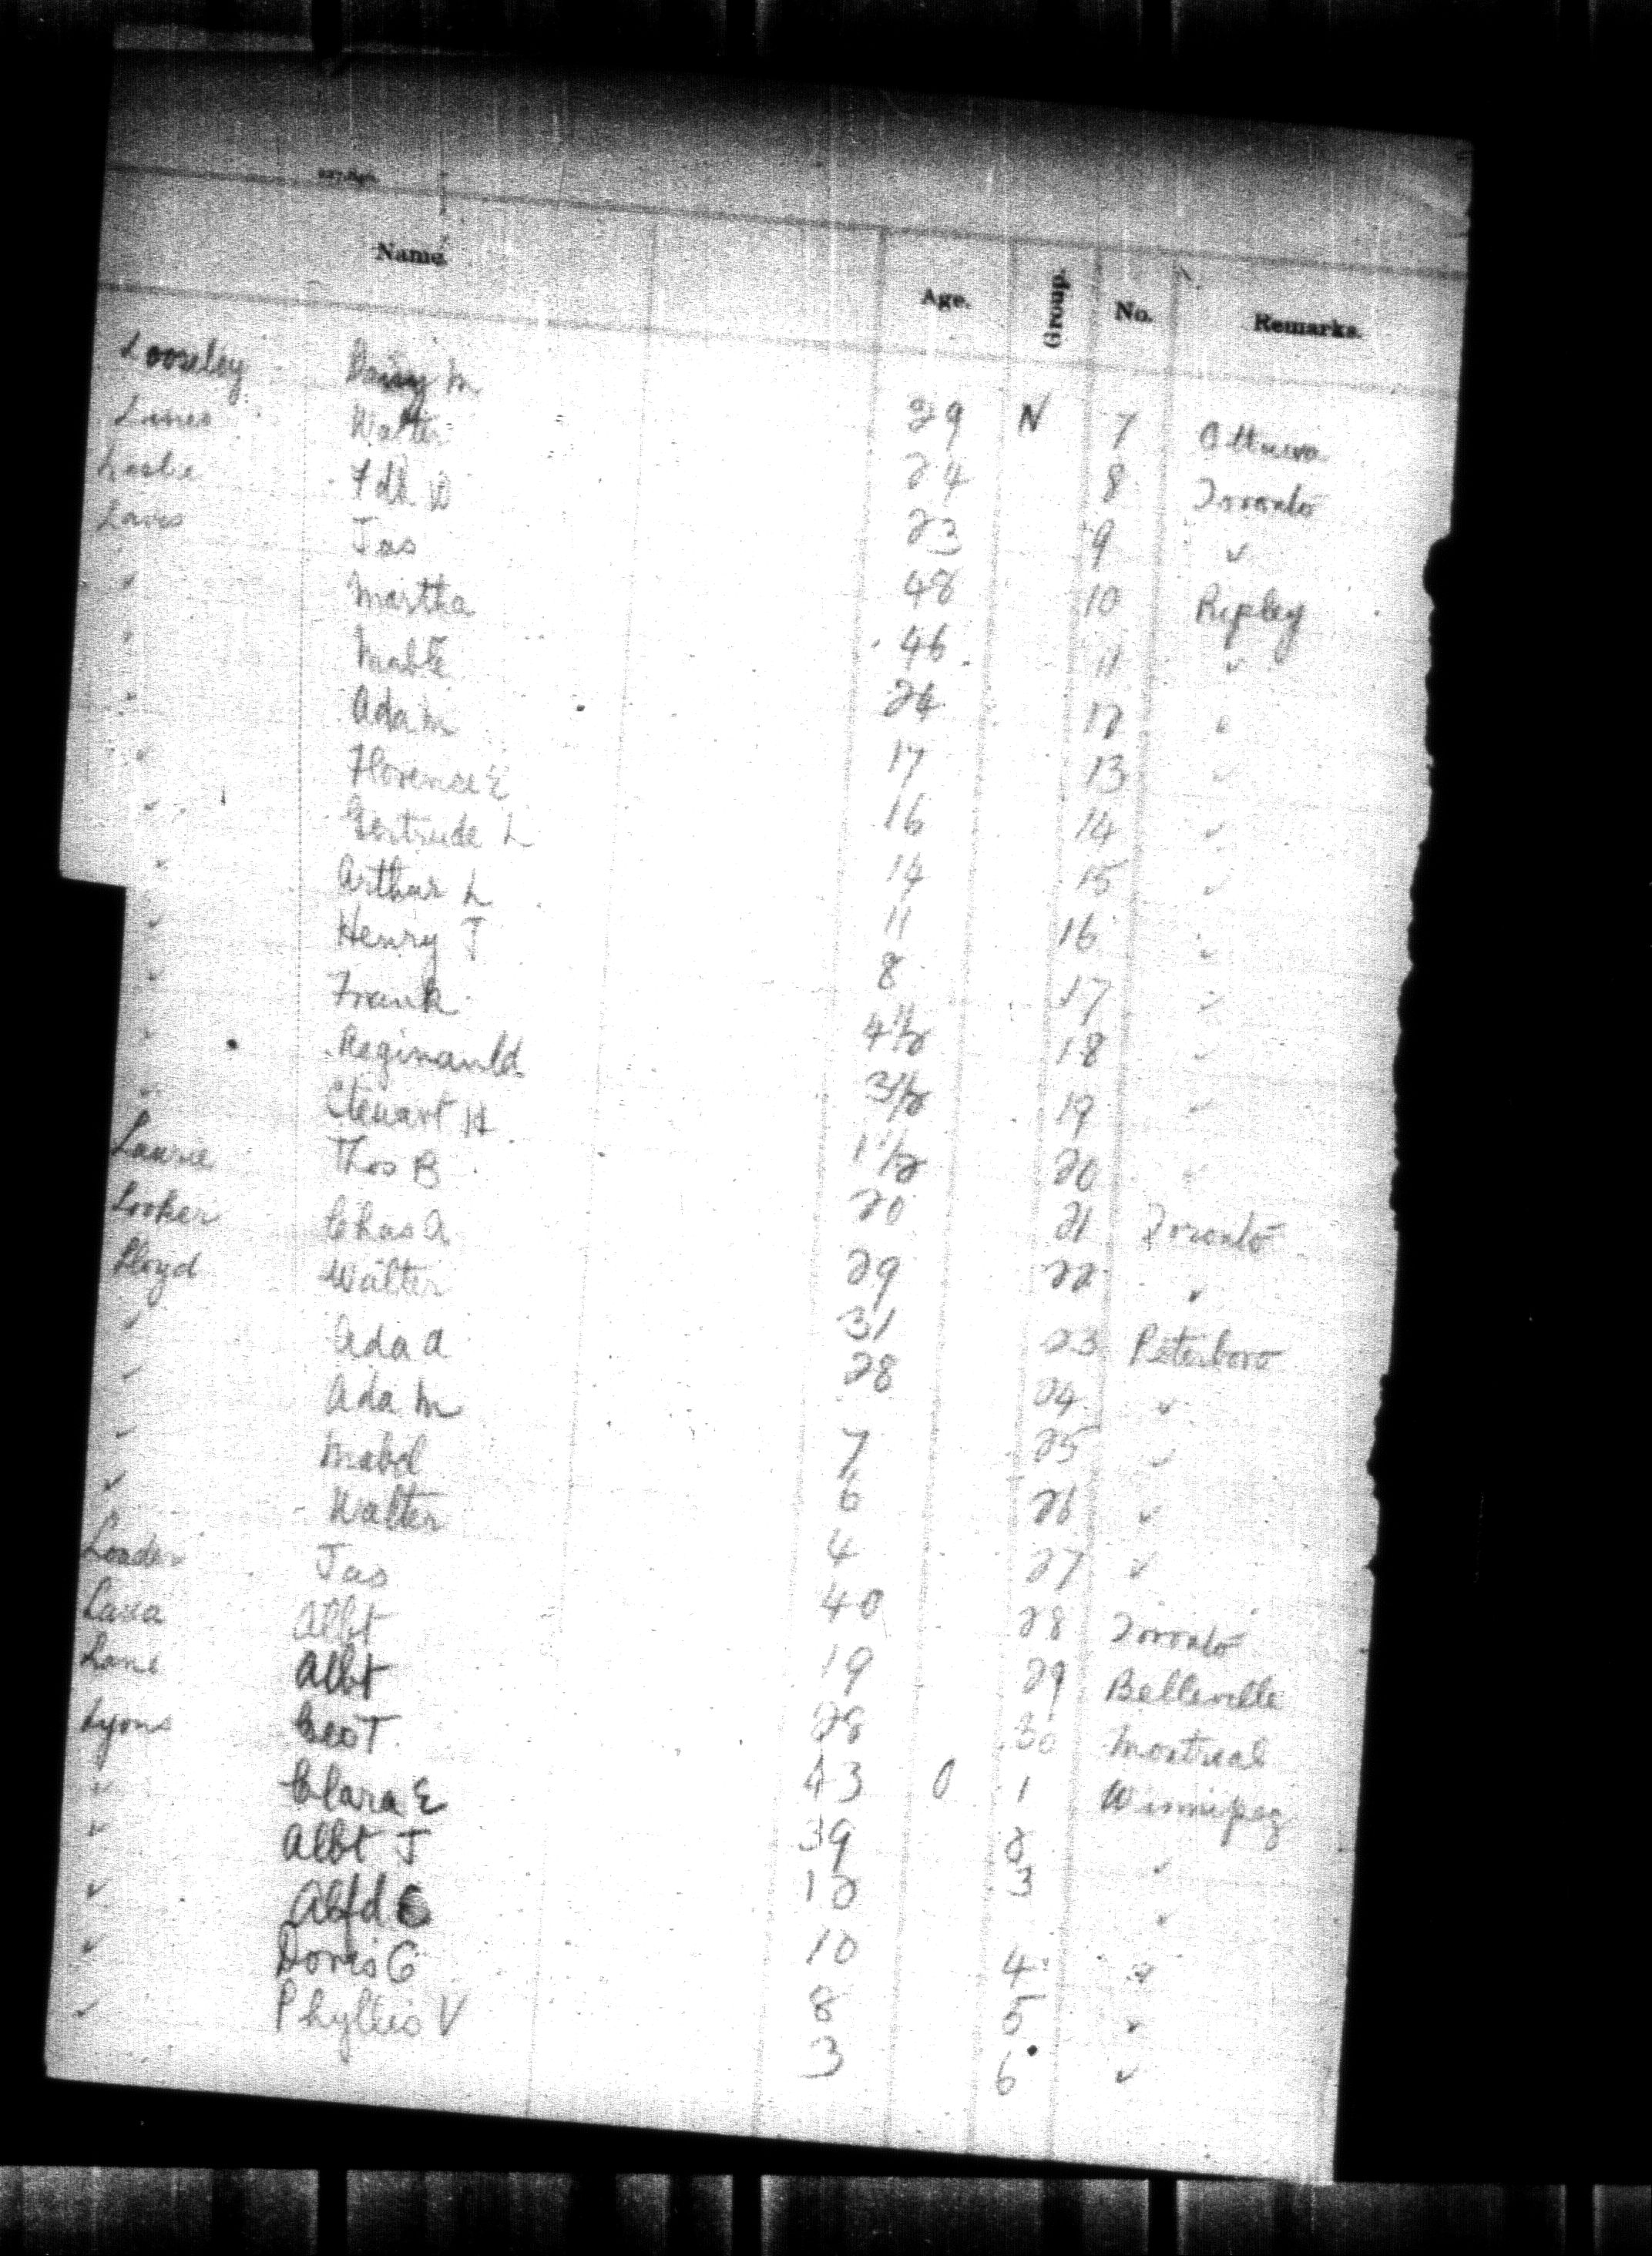 Name. Age. Group. No. Remarks.
Looseley Daisy M 29 N 7 Ottawa
Lines Walter 24 8 Toronto
Leslie Fdk D 23 9 ✓
Laws Jas 48 10 Ripley
✓ Martha 46 11 ✓
✓ Mable 24 12 ✓
✓ Ada M 17 13 ✓
✓ Florence E 16 14 ✓
✓ Gertrude L 14 15 ✓
✓ Arthur L 11 16 ✓
✓ Henry J 8 17 ✓
✓ Frank 4 1/2 18 ✓
✓ Reginauld 3 1/2 19 ✓
✓ Stewart H 1 1/2 20 ✓
Thos B 20 21 Toronto
Looker Chas A 29 22 ✓
Lloyd Walter 31 23 Peterboro
✓ Ada A 28 24 ✓
✓ Ada M 7 25 ✓
✓ Mabel 6 26 ✓
✓ Walter 4 27 ✓
Loader Jas 40 28 Toronto
Albt 19 29 Belleville
Lane Albt 28 30 Montreal
Lyons Geo T 43 O 1 Winnipeg
✓ Clara E 39 2 ✓
✓ Albt J 12 3 ✓
✓ Alfd 10 4 ✓
✓ Doris G 8 5 ✓
✓ Phyllis V 3 6 ✓